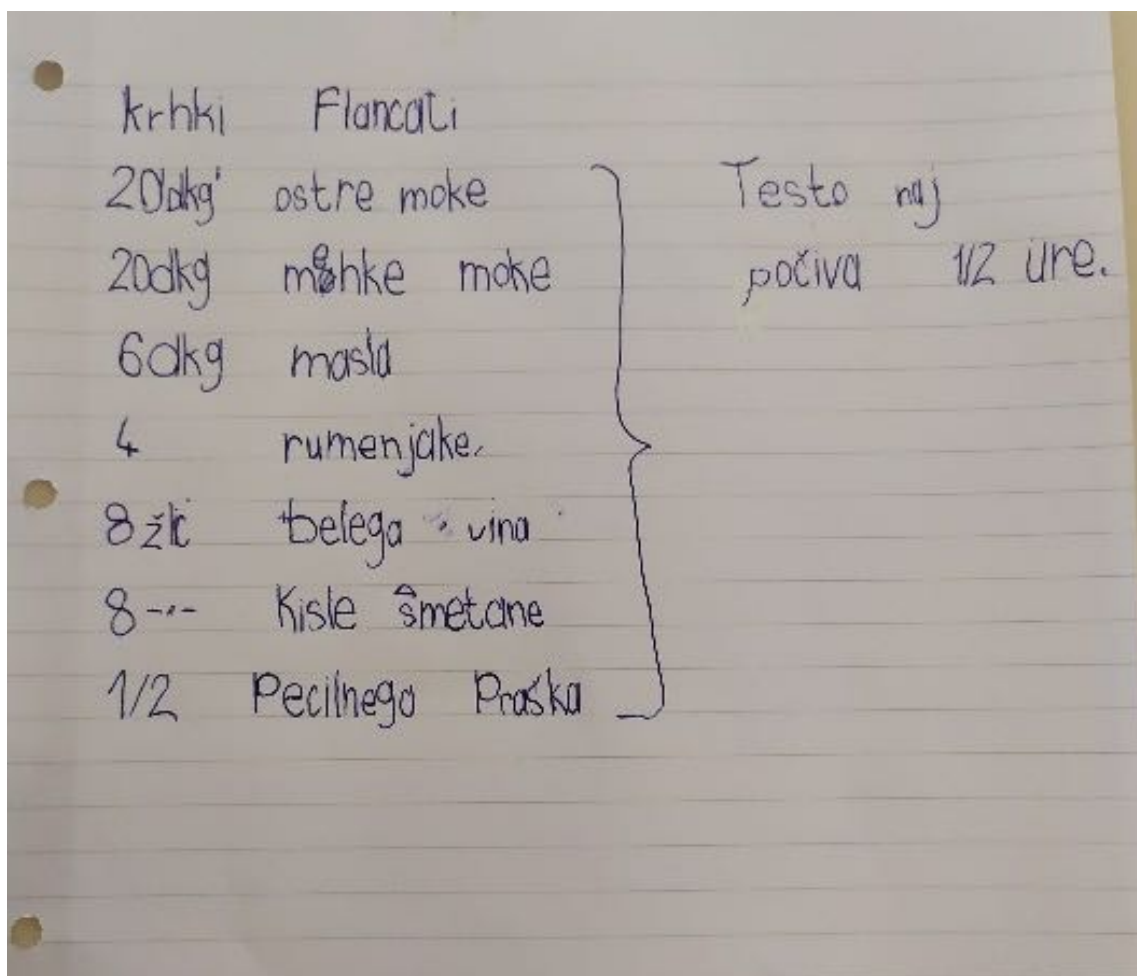 krhki Flancati
20dkg ostre moke
20dkg mehke moke
6dkg masla
4 rumenjake.
8 žlic belega vina
8 -"- Kisle smetane
1/2 Pecilnega Praška
Testo naj
počiva 1/2 ure.